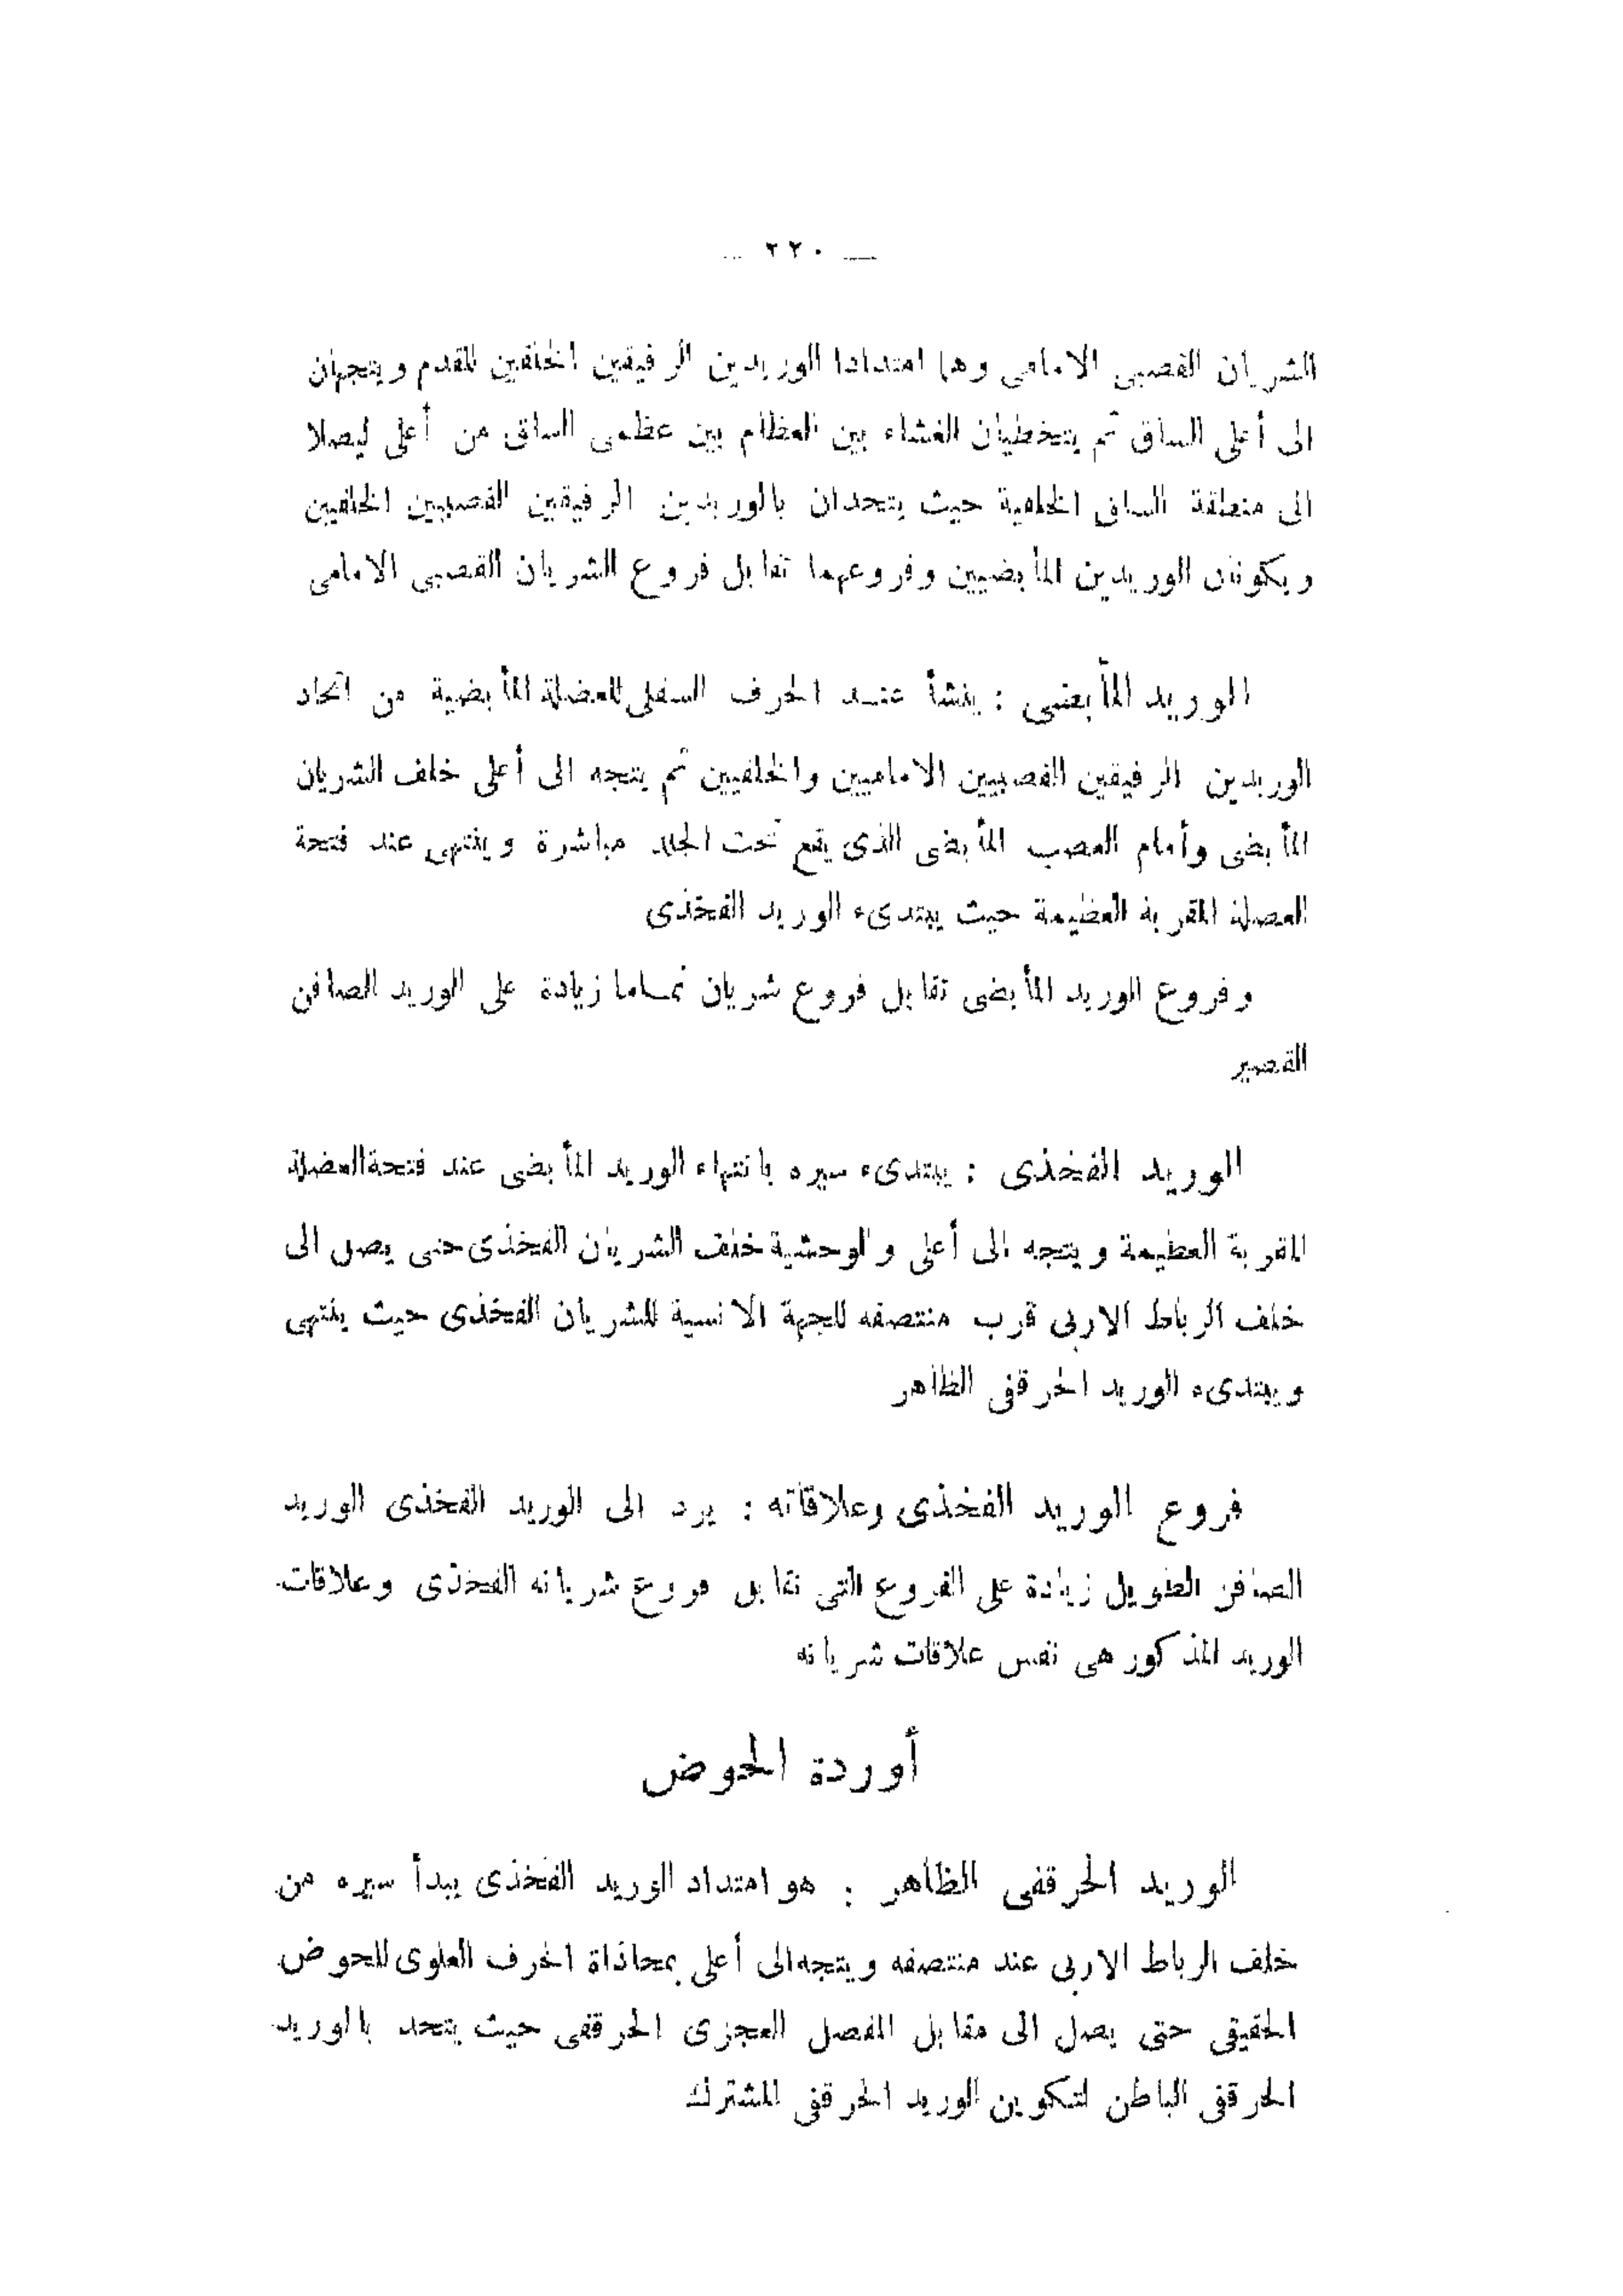 — ٢٢٠ —
الشريان القصبى الامامى وهما امتدادا الوريدين الرفيقين الخلفين للقدم ويتجهان
الى أعلى الساق ثم يتخطيان الغشاء بين العظام بين عظمى الساق من أعلى ليصلا
الى منطقة الساق الخلفية حيث يتحدان بالوريدين الرفيقين القصبيين الخلفيين
ويكونان الوريدين المأبضيين وفروعهما تقابل فروع الشريان القصبى الامامى
الوريد المأبضى : ينشأ عند الحرف السفلى للعضلة المأبضية من اتحاد
الوريدين الرفيقين القصبيين الاماميين والخلفيين ثم يتجه الى أعلى خلف الشريان
المأبضى وأمام العصب المأبضى الذى يقع تحت الجلد مباشرة وينتهى عند فتحة
العضلة المقربة العظيمة حيث يبتدىء الوريد الفخذى
وفروع الوريد المأبضى تقابل فروع شريان تماما زيادة على الوريد الصافن
القصير
الوريد الفخذى : يبتدىء سيره بانتهاء الوريد المأبضى عند فتحة العضلة
المقربة العظيمة ويتجه الى أعلى والوحشية خلف الشريان الفخذى حتى يصل الى
خلف الرباط الاربى قرب منتصفه للجهة الانسية للشريان الفخذى حيث ينتهى
ويبتدىء الوريد الحرقفى الظاهر
فروع الوريد الفخذى وعلاقاته : يرد الى الوريد الفخذى الوريد
الصافن الطويل زيادة على الفروع التى تقابل فروع شريانه الفخذى وعلاقات
الوريد المذكور هى نفس علاقات شريانه
أوردة الحوض
الوريد الحرقفى الظاهر : هو امتداد الوريد الفخذى يبدأ سيره من
خلف الرباط الاربى عند منتصفه ويتجه الى أعلى بمحاذاة الحرف العلوى للحوض
الحقيقى حتى يصل الى مقابل المفصل العجزى الحرقفى حيث يتحد بالوريد
الحرقفى الباطن لتكوين الوريد الحرقفى المشترك